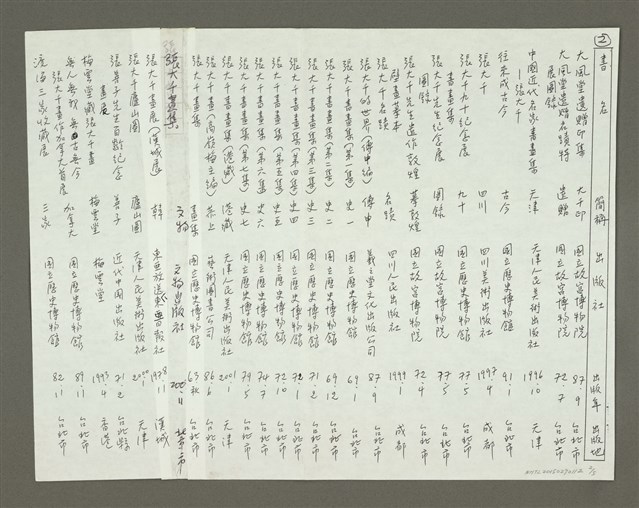 ②
書名 簡稱 出版社 出版年 出版地
大風堂遺贈印集 大千印 國立故宮博物院 87.9 台北市
大風堂遺贈名蹟特展圖錄 遺贈 國立故宮博物院 72.7 台北市
中國近代名家書畫集—張大千 天津 天津人民美術出版社 1996.10 天津
往來成古今 古今 國立歷史博物館 91.1 台北市
張大千 四川 四川美術出版社 1997.4 成都
張大千九十紀念展書畫集 九十 國立歷史博物館 77.5 台北市
張大千先生紀念展圖錄 圖錄 國立故宮博物院 77.5 台北市
張大千先生遺作敦煌壁畫摹本 摹敦煌 國立故宮博物院 72.4 台北市
張大千名蹟 名蹟 四川人民出版社 1999.1 成都
張大千的世界(傅申編) 傅申 羲之堂文化出版公司 87.9 台北市
張大千書畫集(第一集) 史一 國立歷史博物館 69.1 台北市
張大千書畫集(第二集) 史二 國立歷史博物館 69.12 台北市
張大千書畫集(第三集) 史三 國立歷史博物館 71.2 台北市
張大千書畫集(第四集) 史四 國立歷史博物館 72.1 台北市
張大千書畫集(第五集) 史五 國立歷史博物館 72.10 台北市
張大千書畫集(第六集) 史六 國立歷史博物館 74.7 台北市
張大千書畫集(第七集) 史七 國立歷史博物館 79.5 台北市
張大千畫集(港藏) 港藏 天津人民美術出版社 2001.1 天津
張大千畫集(高嶺梅主編) 藝術圖書公司 86.6 台北市
張大千畫集 畫集 國立歷史博物館 63.秋 台北市
張大千畫集 文物 文物出版社 2000.11 北京市
張大千畫展(漢城展) 韓 東亞放送新東亞日報社 1978.11 漢城
張大千廬山圖 廬山圖 天津人民美術出版社 天津
張善子先生百齡紀念畫展 善子 近代中國出版社 71.2 台北縣
梅雲堂藏張大千畫 梅雲堂 梅雲堂 1993.4 香港
無人無我 無古無今
張大千畫作加拿大首展 加拿大 國立歷史博物館 89.11 台北市
渡海三家收藏展 三家 國立歷史博物館 82.11 台北市